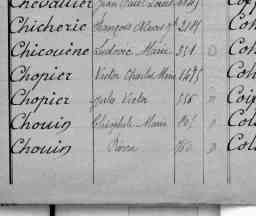 Chevallier Jean Paul Louis
Chicherie François Alexis 2105
Chicouène Ludovic Marie 251 o Coh
Chopier Victor Charles Marie 1495 Coh
Chopier Jules Victor 556 Coi
Chouin Théophile Marie 801 Col
Chouin Pierre 760 Col